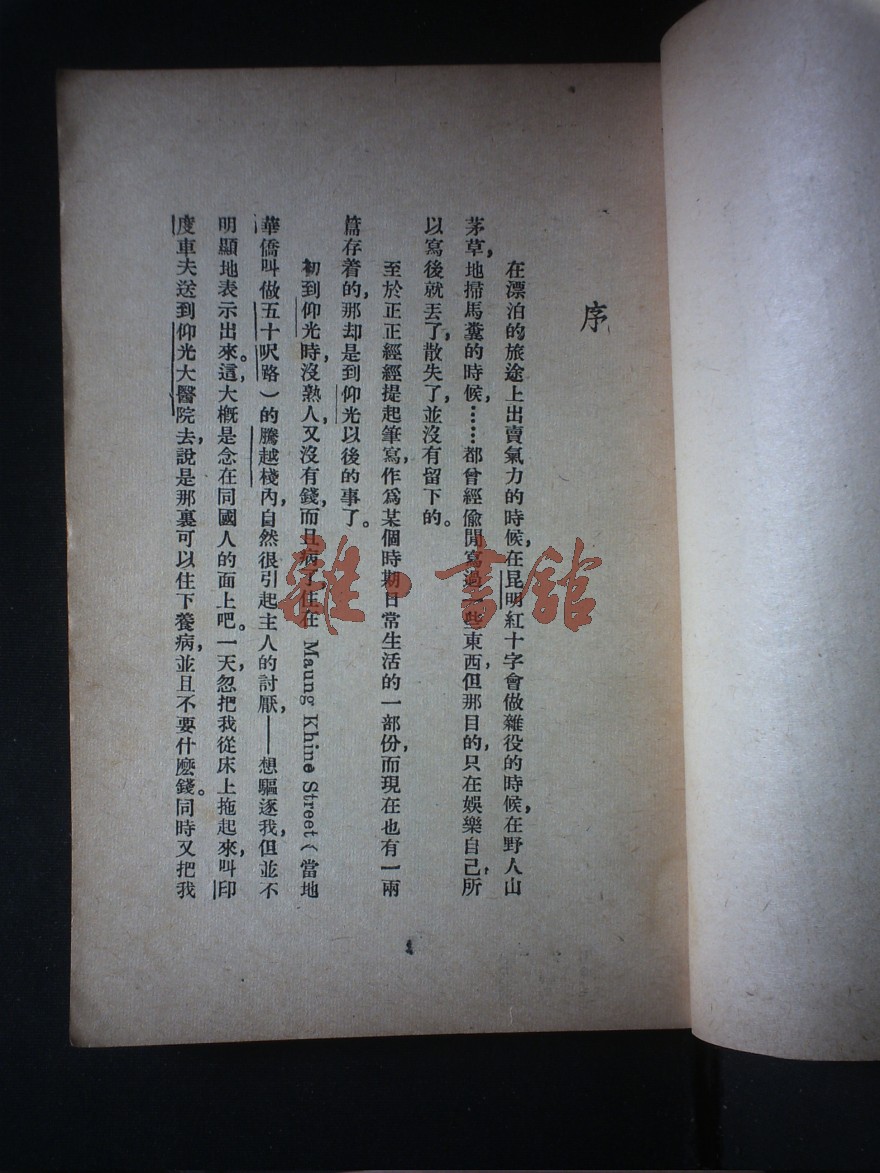 序
在漂泊的旅途上出賣氣力的時候，在昆明紅十字會做雜役的時候，在野人山
茅草地掃馬糞的時候，……都曾經偸閒寫過一些東西，但那目的，只在娛樂自己，所
以寫後就丟了，散失了，並沒有留下的。
至於正正經經提起筆寫，作爲某個時期日常生活的一部份，而現在也有一兩
篇存着的，那却是到仰光以後的事了。
初到仰光時，沒熟人，又沒有錢，而且病了，住在 Maung Khine Street（當地
華僑叫做五十呎路）的騰越棧內，自然很引起主人的討厭，——想驅逐我，但並不
明顯地表示出來。這，大槪是念在同國人的面上吧。一天，忽把我從床上拖起來，叫印
度車夫送到仰光大醫院去，說是那裏可以住下養病，並且不要什麽錢。同時又把我
雜·書館